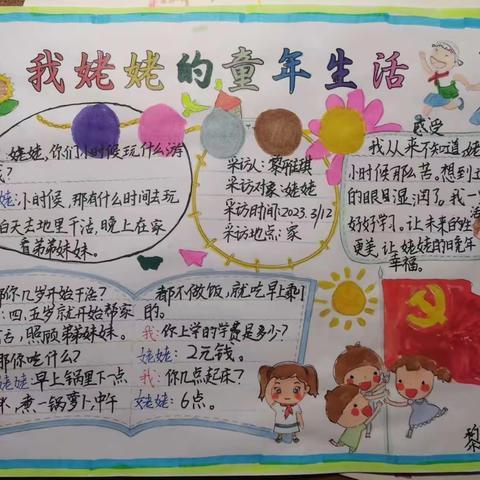 我姥姥的童年生活
姥姥,你们小时候玩什么游
小时候,那有什么时间去玩
白天去地里干活,晚上在家
看弟弟妹妹。
采访人:黎雅琪
采访对象:姥姥
采访时间:2023.3/12
采访地点:家
感受
我从来不知道,姥
小时候那么苦。想到
的眼目湿润了。我一
好好学习。让未来的生活
更美,让姥姥的晚年
幸福。
那你几岁开始干活?
:四、五岁就开始帮家
活,照顾弟弟妹妹。
那你吃什么?
姥姥:早上锅里下一点
米,煮一锅萝卜,中午
都不做饭,就吃早上剩
的。
我:你上学的学费是多少?
姥姥:2元钱。
我:你几点起床?
姥姥:6点。
黎